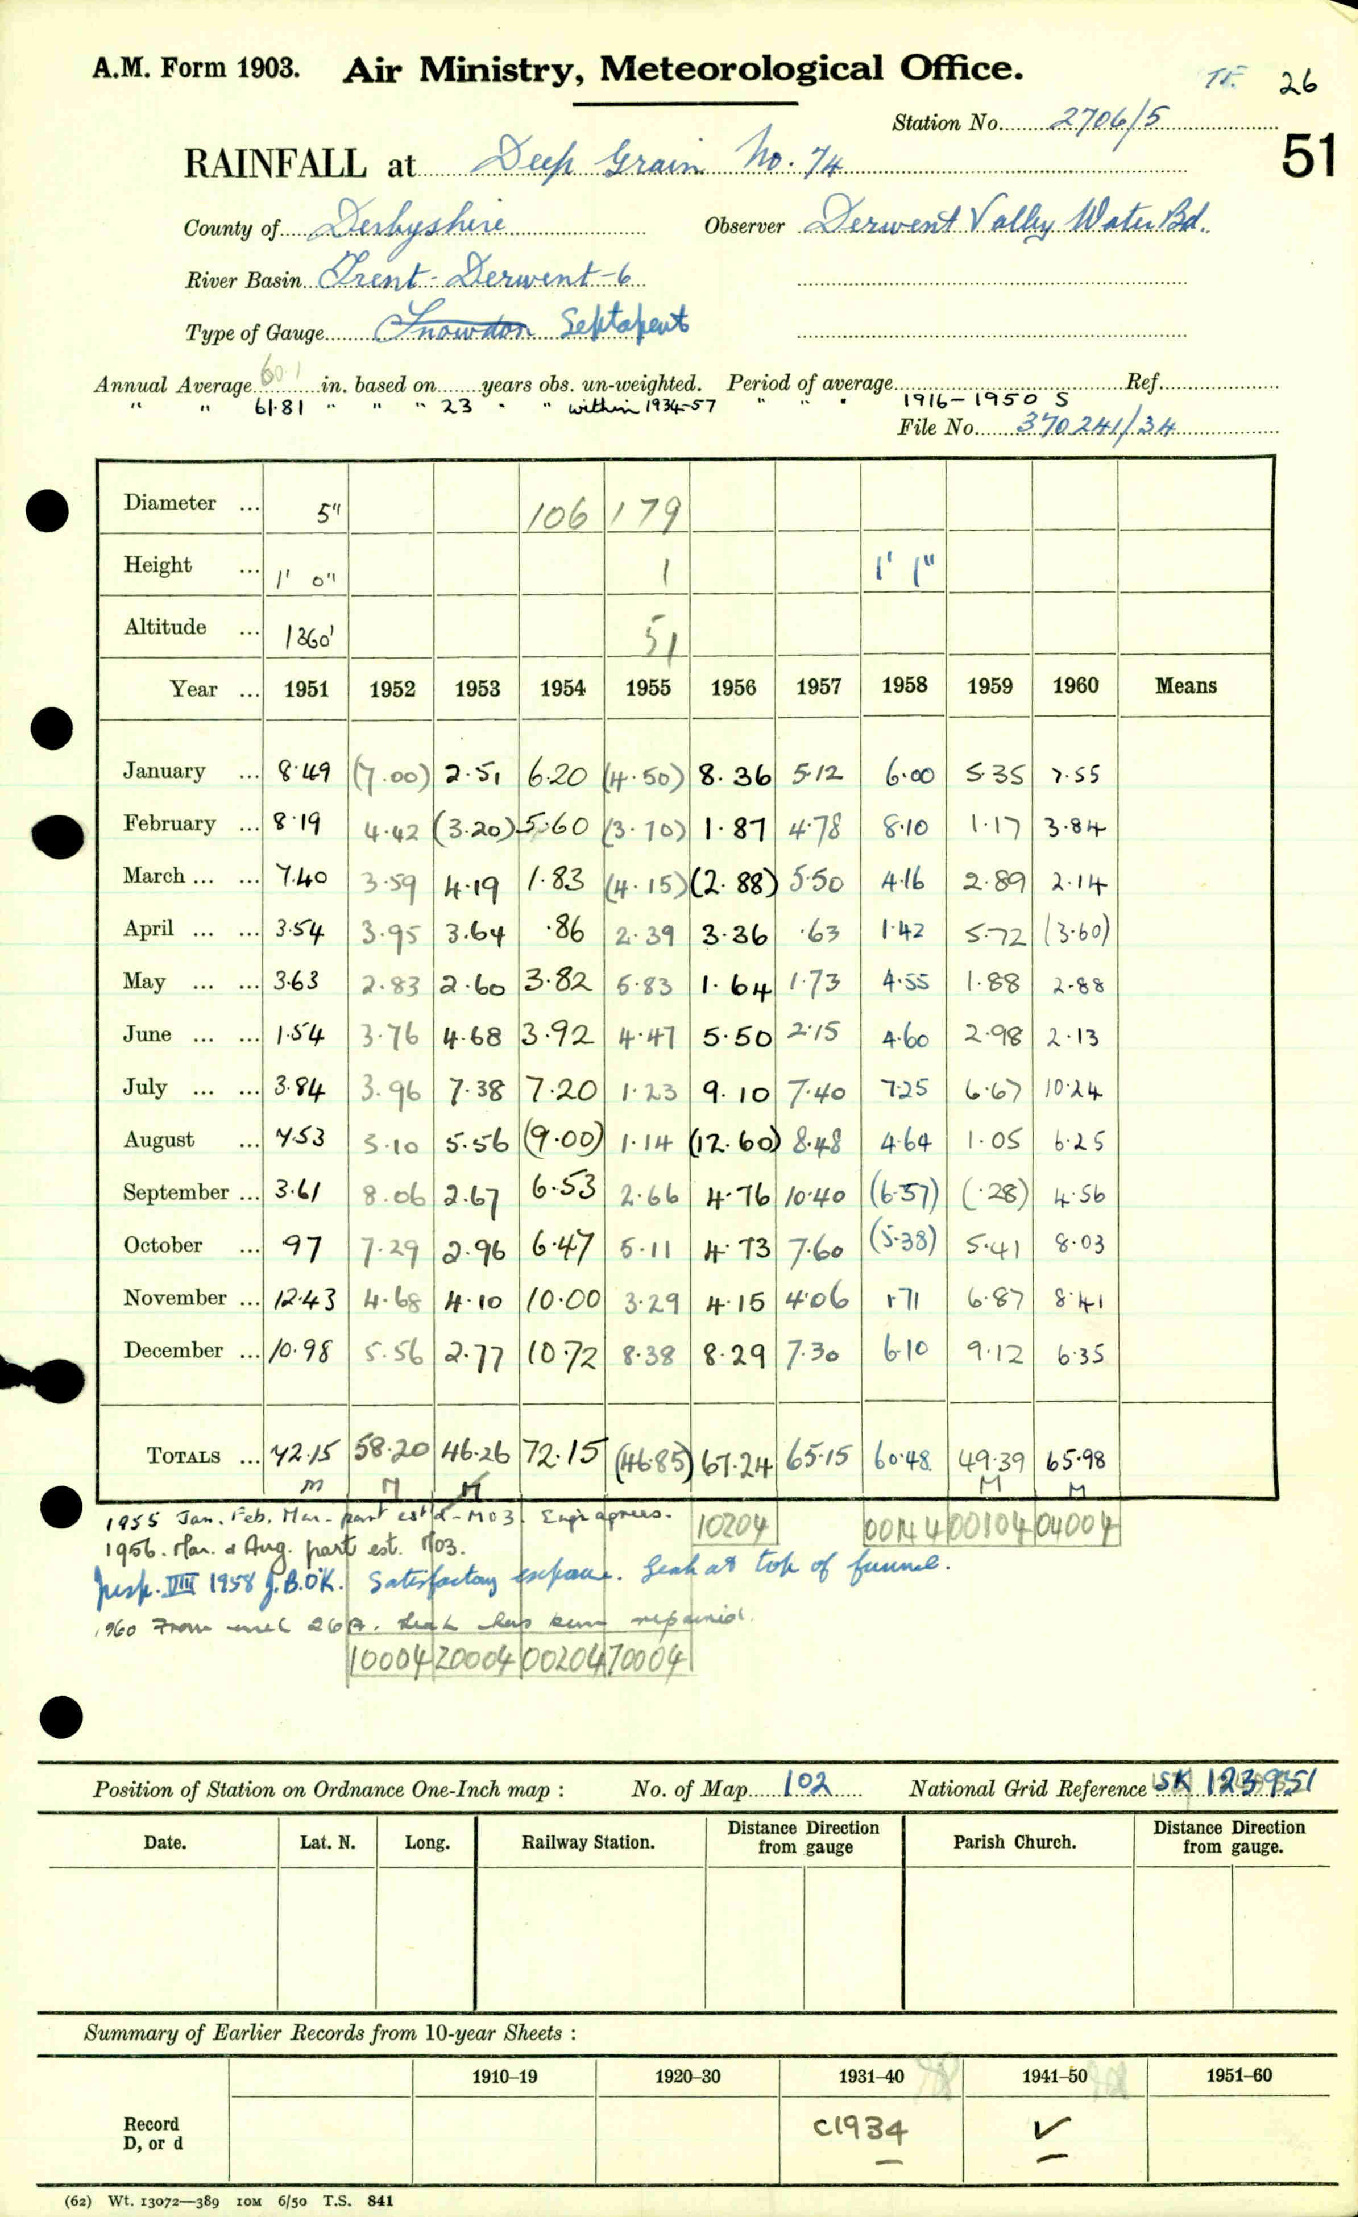 A.M. Form 1903. Air Ministry, Meteorological Office. 26
Station No. 2706/5
51
RAINFALL at Deep Grain No. 74
County of Derbyshire Observer Derwent Valley Water Bd.
River Basin Trent-Derwent-6
Type of Gauge Snowdon Septapent
Annual Average 60.1 in. based on years obs. un-weighted. Period of average Ref.
" " 61.81 " " " 23 " " within 1934-57 " " " 1916-1950 S
File No. 370241/34
Diameter ... 5" 106 179
Height ... 1' 0" 1 1' 1"
Altitude ... 1360' 51
Year ... 1951 1952 1953 1954 1955 1956 1957 1958 1959 1960 Means
January ... 8.49 (7.00) 2.51 6.20 (4.50) 8.36 5.12 6.00 5.35 7.55
February ... 8.19 4.42 (3.20) 5.60 (3.70) 1.87 4.78 8.10 1.17 3.84
March ... ... 7.40 3.59 4.19 1.83 (4.15) (2.88) 5.50 4.16 2.89 2.14
April ... ... 3.54 3.95 3.64 .86 2.39 3.36 .63 1.42 5.72 (3.60)
May ... ... 3.63 2.83 2.60 3.82 5.83 1.64 1.73 4.55 1.88 2.88
June ... ... 1.54 3.76 4.68 3.92 4.47 5.50 2.15 4.60 2.98 2.13
July ... ... 3.84 3.96 7.38 7.20 1.23 9.10 7.40 7.25 6.67 10.24
August ... 7.53 3.10 5.56 (9.00) 1.14 (12.60) 8.48 4.64 1.05 6.25
September ... 3.61 8.06 2.67 6.53 2.66 4.76 10.40 (6.57) (.28) 4.56
October ... .97 7.29 2.96 6.47 5.11 4.73 7.60 (5.38) 5.41 8.03
November ... 12.43 4.68 4.10 10.00 3.29 4.15 4.06 1.71 6.87 8.41
December ... 10.98 5.56 2.77 10.72 8.38 8.29 7.30 6.10 9.12 6.35
TOTALS ... 72.15 58.20 46.26 72.15 (46.85) 67.24 65.15 60.48 49.39 65.98
M M M M M
1955 Jan. Feb. Mar. part est'd - M03. Engr agrees. 10204 00144 00104 04004
1956. Mar. & Aug. part est. M03.
Insp. VIII 1958 J.B.OK. Satisfactory exposure. Leak at top of funnel.
1960 From 26 leak has been repaired.
10004 20004 00204 70004
Position of Station on Ordnance One-Inch map : No. of Map 102 National Grid Reference SK 123951
Date. Lat. N. Long. Railway Station. Distance Direction from gauge Parish Church. Distance Direction from gauge.
Summary of Earlier Records from 10-year Sheets :
1910–19 1920–30 1931–40 1941–50 1951–60
Record
D, or d C1934 ✓
(62) Wt. 13072—389 10M 6/50 T.S. 841